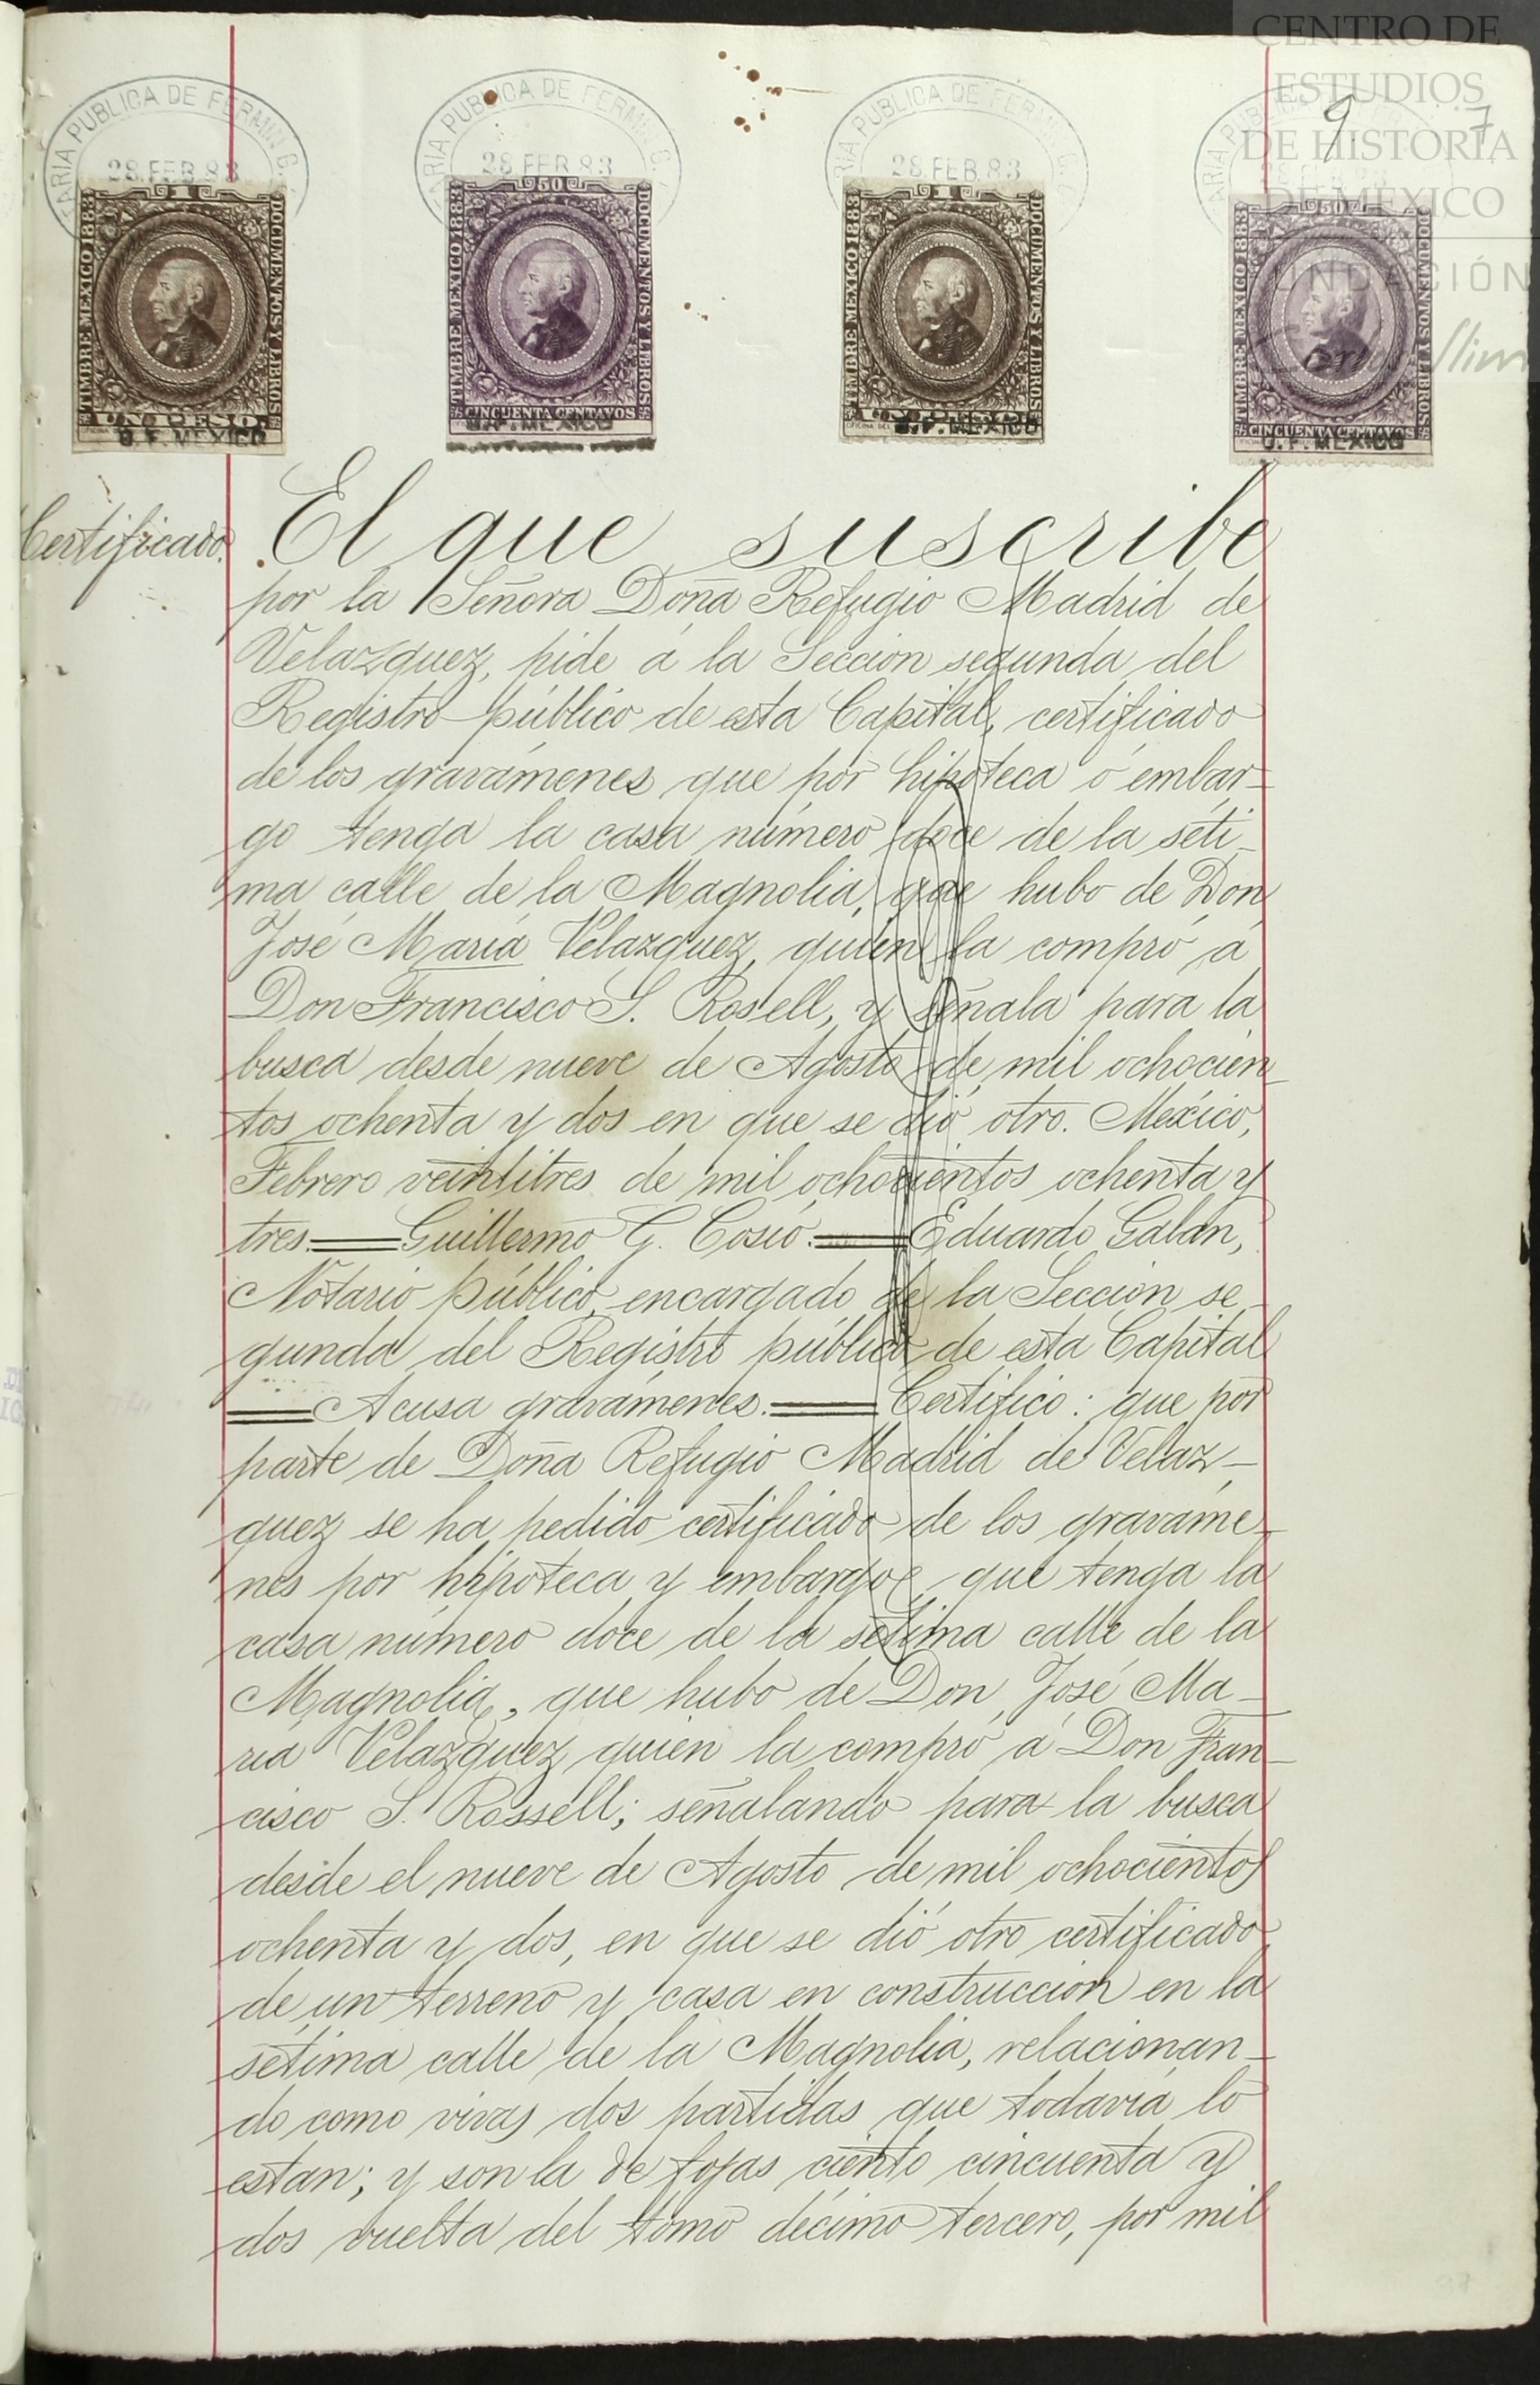 CENTRO DE
ESTUDIOS
DE HISTORIA
DE MÉXICO
FUNDACIÓN
Carlos Slim
9 7
NOTARIA PUBLICA DE FERMIN G.
28 FEB. 83
TIMBRE MEXICO 1883
1
DOCUMENTOS Y LIBROS
UN PESO.
D. F. MEXICO
ARIA PUBLICA DE FERMIN G.
28 FEB. 83
TIMBRE MEXICO 1883
50
DOCUMENTOS Y LIBROS
CINCUENTA CENTAVOS
D. F. MEXICO
ARIA PUBLICA DE FERMIN G.
28 FEB. 83
TIMBRE MEXICO 1883
1
DOCUMENTOS Y LIBROS
UN PESO.
D. F. MEXICO
ARIA PUBLICA DE
TIMBRE MEXICO 1883
50
DOCUMENTOS Y LIBROS
CINCUENTA CENTAVOS
D. F. MEXICO
Certificado.
El que suscribe
por la Señora Doña Refugio Madrid de
Velazquez, pide á la Seccion segunda del
Registro público de esta Capital, certificado
de los gravámenes que por hipoteca ó embar-
go tenga la casa número doce de la séti-
ma calle de la Magnolia, que hubo de Don
José María Velazquez, quien la compró á
Don Francisco S. Rosell, y señala para la
busca desde nueve de Agosto de mil ochocien-
tos ochenta y dos en que se dió otro. México,
Febrero veintitres de mil ochocientos ochenta y
tres.=Guillermo G. Cosío.=Eduardo Galan,
Notario público, encargado de la Seccion se-
gunda del Registro público de esta Capital
=Acusa gravámenes.=Certifico: que por
parte de Doña Refugio Madrid de Velaz-
quez se ha pedido certificado de los graváme-
nes por hipoteca y embargo, que tenga la
casa número doce de la sétima calle de la
Magnolia, que hubo de Don José Ma-
ría Velazquez quien la compró á Don Fran-
cisco S. Rossell; señalando para la busca
desde el nueve de Agosto de mil ochocientos
ochenta y dos, en que se dió otro certificado
de un terreno y casa en construccion en la
sétima calle de la Magnolia, relacionan-
do como vivas dos partidas que todavía lo
estan; y son la de fojas ciento cincuenta y
dos vuelta del tomo décimo tercero, por mil